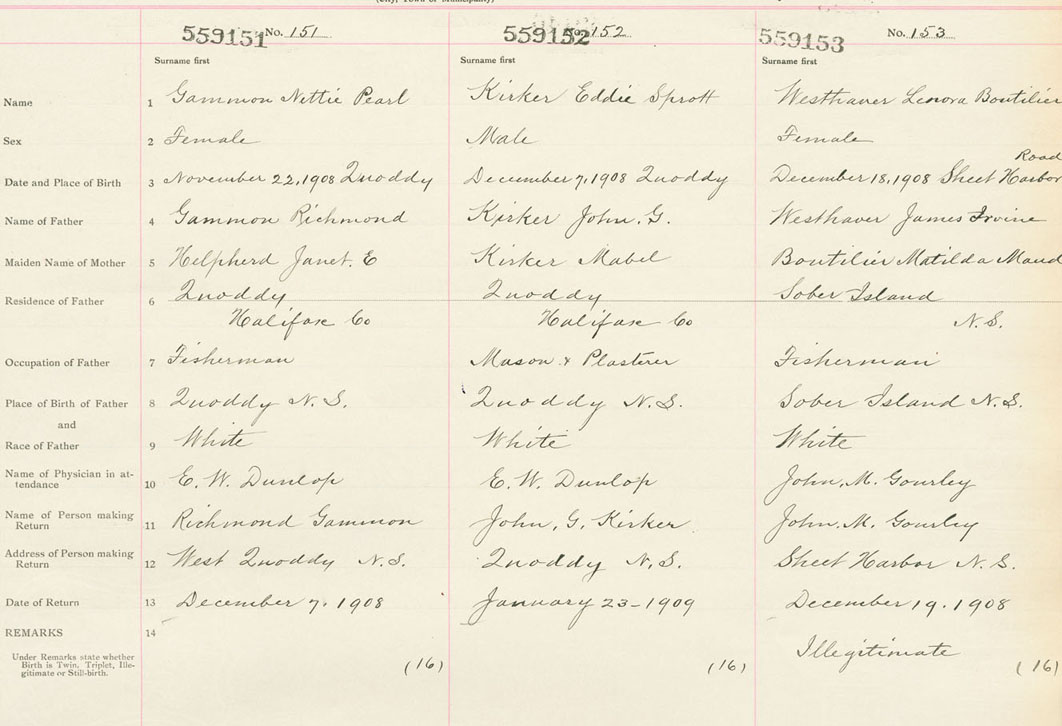 (City, Town or Municipality)
559151 No. 151 559152 No. 152 559153 No. 153
Surname first Surname first Surname first
Name 1 Gammon Nettie Pearl Kirker Eddie Sprott Westhaver Lenora Boutilier
Sex 2 Female Male Female
Road
Date and Place of Birth 3 November 22, 1908 Quoddy December 7, 1908 Quoddy December 18, 1908 Sheet Harbor
Name of Father 4 Gammon Richmond Kirker John. G. Westhaver James Irvine
Maiden Name of Mother 5 Helpherd Janet. E Kirker Mabel Boutilier Matilda Maud
Residence of Father 6 Quoddy Quoddy Sober Island
Halifax Co Halifax Co N.S.
Occupation of Father 7 Fisherman Mason & Plasterer Fisherman
Place of Birth of Father 8 Quoddy N.S. Quoddy N.S. Sober Island N.S.
and
Race of Father 9 White White White
Name of Physician in at-
tendance 10 E. W. Dunlop E. W. Dunlop John, M. Gourley
Name of Person making
Return 11 Richmond Gammon John, G. Kirker John. M. Gourley
Address of Person making
Return 12 West Quoddy N.S. Quoddy N.S. Sheet Harbor N.S.
Date of Return 13 December 7, 1908 January 23-1909 December 19. 1908
REMARKS 14
Under Remarks state whether
Birth is Twin, Triplet, Ille-
gitimate or Still-birth.
Illegitimate
(16) (16) (16)